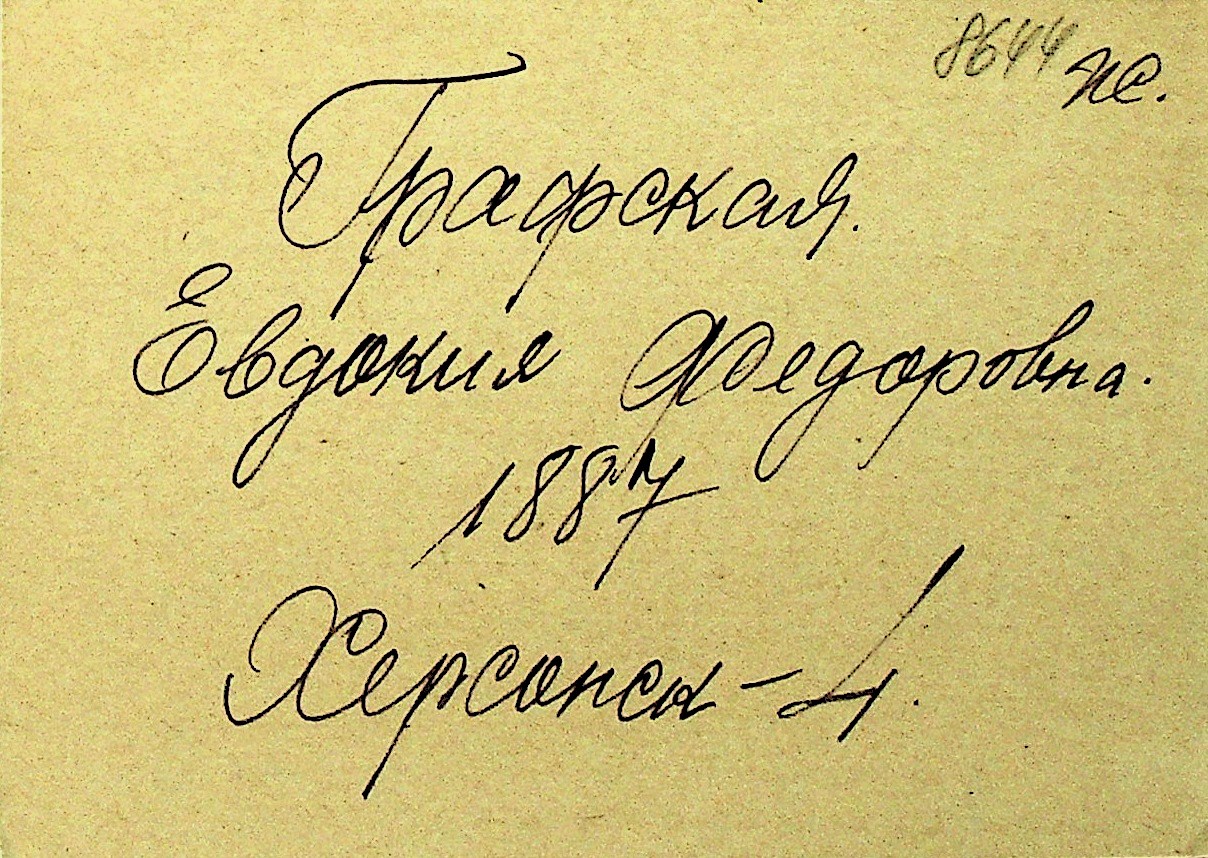 8644 ж.
Графская.
Евдокия Федоровна.
1887
Херсонск-4.